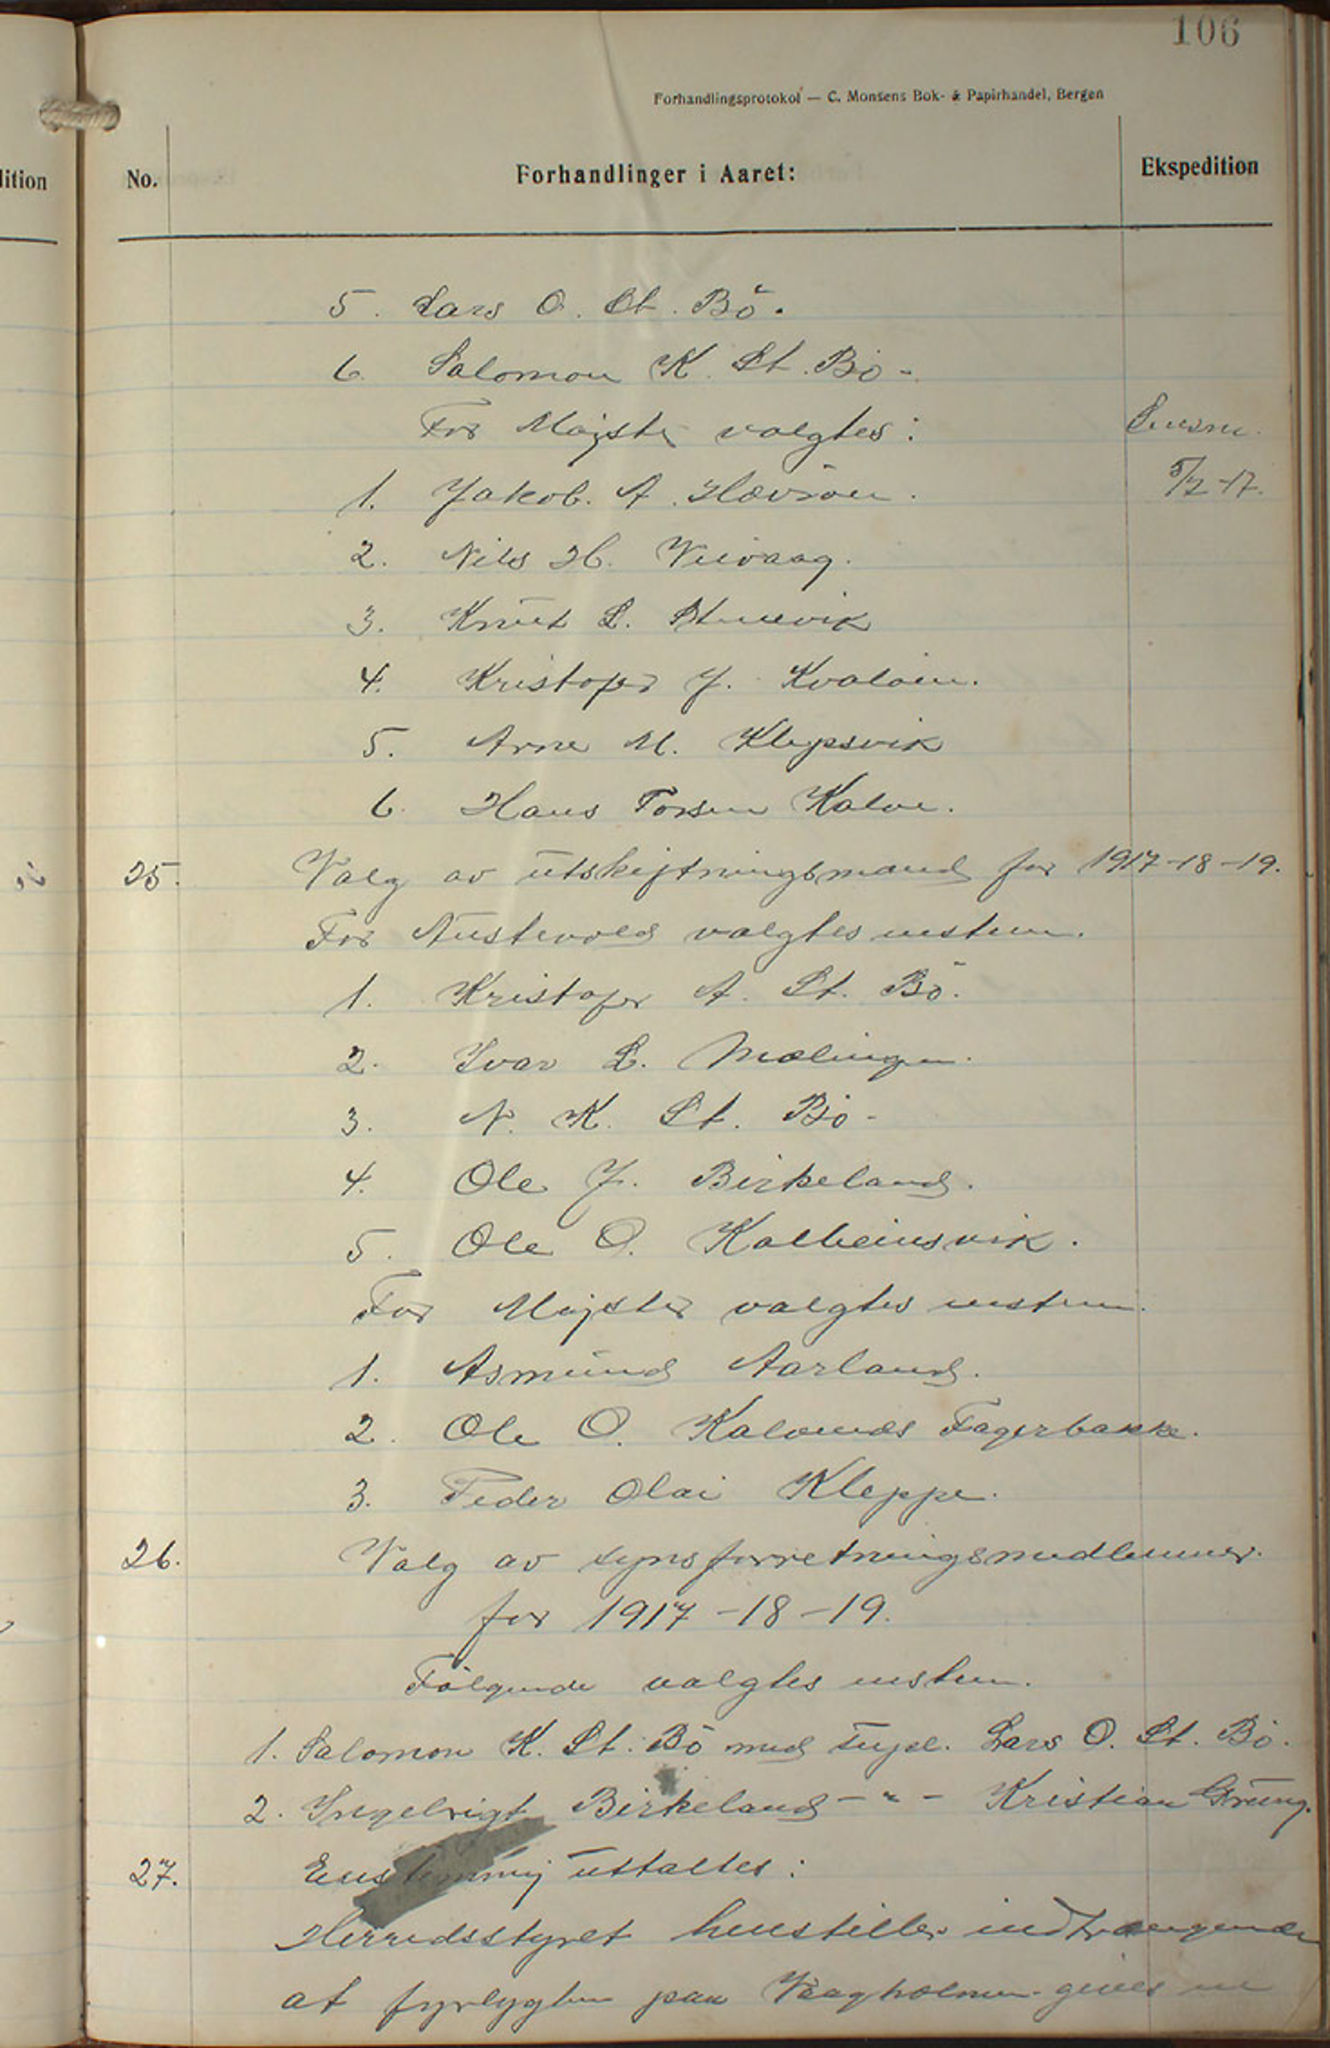 106
Forhandlingsprotokol — C. Monsens Bok- & Papirhandel, Bergen
dition
No.
Forhandlinger i Aaret:
Ekspedition
5. Lars O. St. Bö.
6. Salomon K. St. Bö.
For Møgster valgtes:
5/2-17.
1. Jakob. A. Hævröen.
2. Nils H. Veivaag.
3. Knut L. Stenevik
4. Kristofer J. Kvalöen.
5. Arne M. Klepsvik
6. Hans Torsen Kalve.
25. Valg av utskiftningsmænd for 1917-18-19.
For Austevold valgtes enstem.
1. Kristofer A. St. Bö.
2. Ivar L. Mælingen.
3. N. K. St. Bö.
4. Ole J. Birkeland.
5. Ole O. Kolbeinsvik.
For Møgster valgtes enstem.
1. Asmund Aarland.
2. Ole O. Kalvenes Fagerbakke.
3. Peder Olai Kleppe.
26. Valg av synsforretningsmedlemmer
for 1917-18-19.
Følgende valgtes enstem.
1. Salomon K. St. Bö med supl. Lars O. St. Bö.
2. Ingebrigt Birkeland -"- Kristian Gröning.
27. Enstemmig uttaltes:
Herredsstyret henstiller indtrængende
at fyrlygten paa Vaagholmen gives en